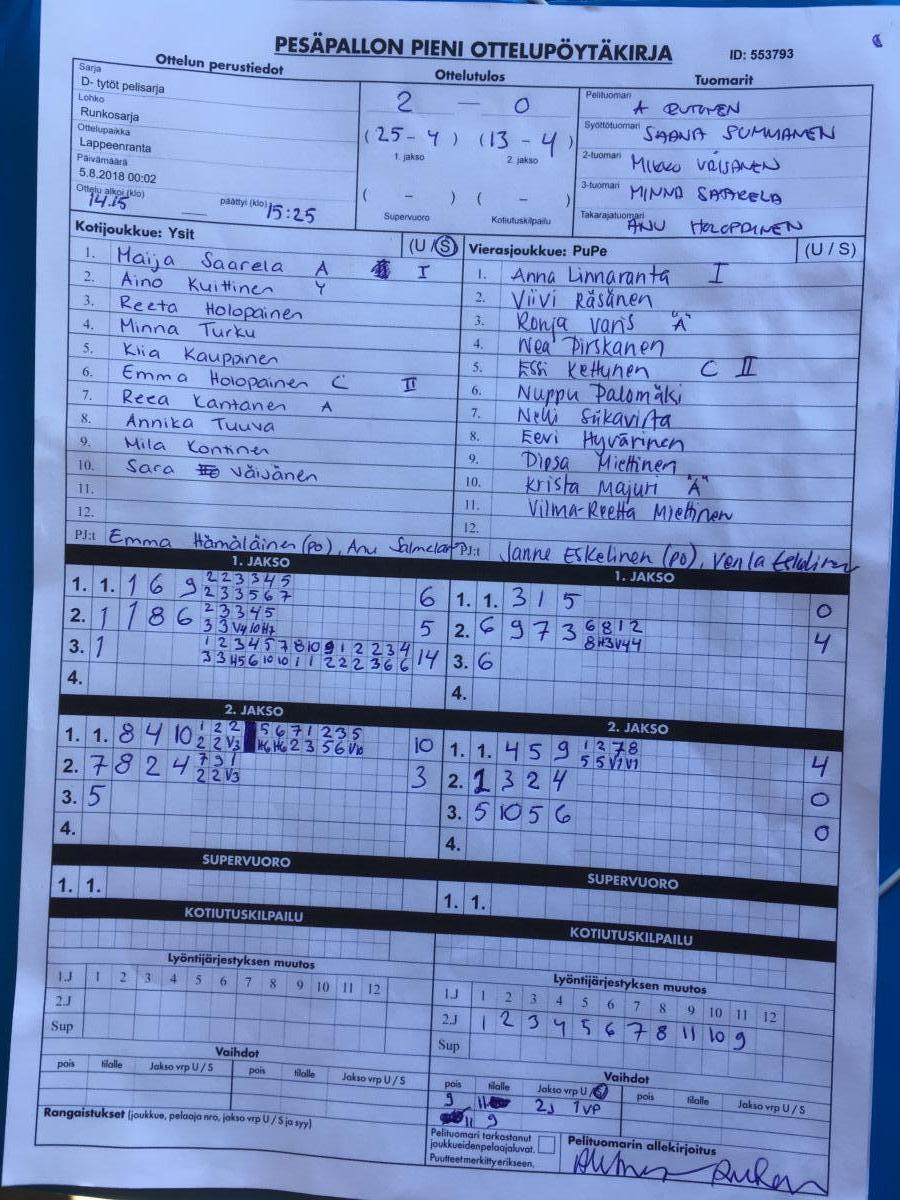 PESÄPALLON PIENI OTTELUPÖYTÄKIRJA
ID: 553793
Ottelun perustiedot
Sarja
D- tytöt pelisarja
Lohko
Runkosarja
Ottelupaikka
Lappeenranta
Päivämäärä
5.8.2018 00:02
Ottelu alkoi (klo) 14.15 päättyi (klo) 15:25
Ottelutulos
2 — 0
(25 - 4) (13 - 4)
1. jakso 2. jakso
( - ) ( - )
Supervuoro Kotiutuskilpailu
Tuomarit
Pelituomari A
Syöttötuomari SAANA SUMMANEN
2-tuomari MIKKO VÄISÄNEN
3-tuomari MINNA SAARELA
Takarajatuomari ANU HOLOPAINEN
Kotijoukkue: Ysit (U / S)
1. Maija Saarela A I
2. Aino Kuittinen Y
3. Reeta Holopainen
4. Minna Turku
5. Kiia Kauppinen
6. Emma Holopainen C II
7. Reea Kantanen A
8. Annika Tuuva
9. Mila Kontinen
10. Sara Väisänen
11.
12.
PJ:t Emma Hämäläinen (po), Anu
Vierasjoukkue: PuPe (U / S)
1. Anna Linnaranta I
2. Viivi Räsänen
3. Ronja Varis "A"
4. Nea Pirskanen
5. Essi Kettunen C II
6. Nuppu Palomäki
7. Nelli Siikavirta
8. Eevi Hyvärinen
9. Miettinen
10. Krista Majuri "A"
11. Vilma-Reetta Miettinen
12.
PJ:t Janne Eskelinen (po), Venla
1. JAKSO
1. 1. 1 6 9 2 2 3 3 4 5 6
2 3 3 5 6 7
2. 1 1 8 6 2 3 3 4 5 5
3 3 V4 10 H7
3. 1 1 2 3 4 5 7 8 10 9 1 2 2 3 4 14
3 3 H5 6 10 10 1 1 2 2 2 3 6 6
4.
1. JAKSO
1. 1. 3 1 5 0
2. 6 9 7 3 6 8 1 2 4
8 H3 V4 4
3. 6
4.
2. JAKSO
1. 1. 8 4 10 1 2 2 5 6 7 1 2 3 5 10
2 2 V3 H6 H6 2 3 5 6 V10
2. 7 8 2 4 7 9 1 3
2 2 V3
3. 5
4.
2. JAKSO
1. 1. 4 5 9 1 2 7 8 4
5 5 V1 V1
2. 1 3 2 4 0
3. 5 10 5 6 0
4.
SUPERVUORO
1. 1.
SUPERVUORO
1. 1.
KOTIUTUSKILPAILU
KOTIUTUSKILPAILU
Lyöntijärjestyksen muutos
1.J 1 2 3 4 5 6 7 8 9 10 11 12
2.J
Sup
Lyöntijärjestyksen muutos
1.J 1 2 3 4 5 6 7 8 9 10 11 12
2.J 1 2 3 4 5 6 7 8 11 10 9
Sup
Vaihdot
pois tilalle Jakso vrp U / S pois tilalle Jakso vrp U / S
Vaihdot
pois tilalle Jakso vrp U / S pois tilalle Jakso vrp U / S
9 11 2J 1VP
11 9
Rangaistukset (joukkue, pelaaja nro, jakso vrp U / S ja syy)
Pelituomari tarkastanut
joukkueidenpelaajaluvat.
Puutteet merkitty erikseen.
Pelituomarin allekirjoitus